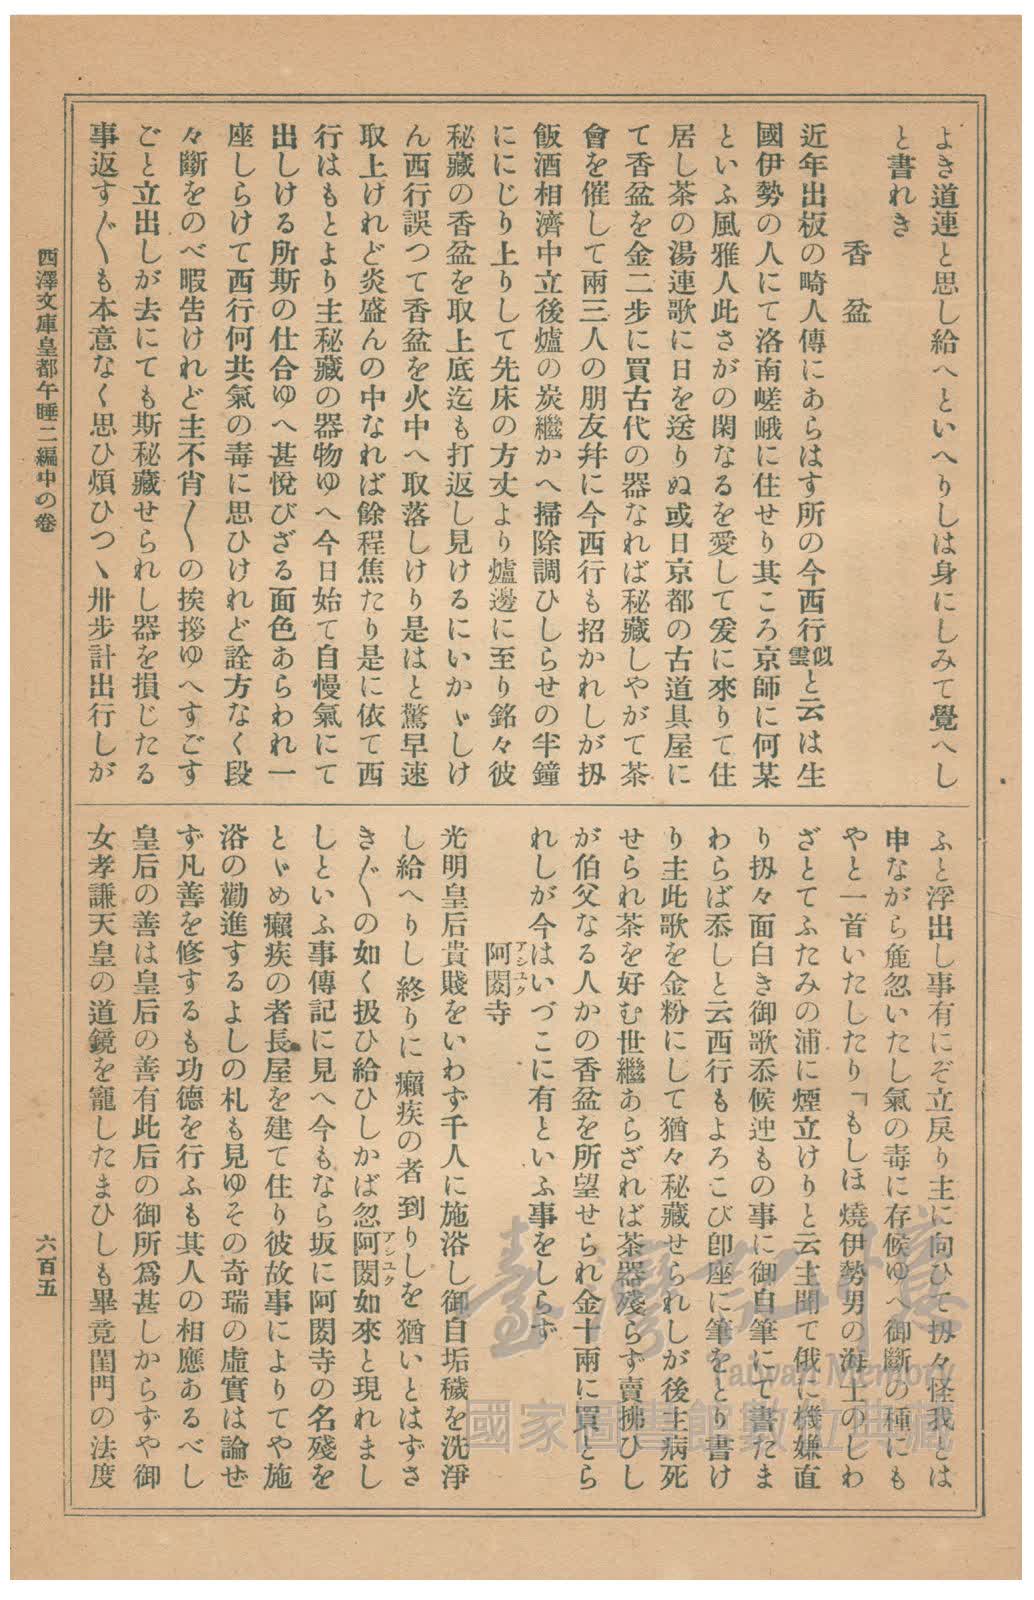 よき道連と思し給へといへりしは身にしみて覺へし
と書れき
香盆
近年出板の畸人傳にあらはす所の今西行似雲と云は生
國伊勢の人にて洛南嵯峨に住せり其ころ京師に何某
といふ風雅人此さがの閑なるを愛して爰に來りて住
居し茶の湯連歌に日を送りぬ或日京都の古道具屋に
て香盆を金二步に買古代の器なれば秘藏しやがて茶
會を催して兩三人の朋友幷に今西行も招かれしが扨
飯酒相濟中立後爐の炭繼かへ掃除調ひしらせの半鐘
ににじり上りして先床の方丈より爐邊に至り銘々彼
秘藏の香盆を取上底迄も打返し見けるにいかゞしけ
ん西行誤つて香盆を火中へ取落しけり是はと驚早速
取上けれど炎盛んの中なれば餘程焦たり是に依て西
行はもとより主秘藏の器物ゆへ今日始て自慢氣にて
出しける所斯の仕合ゆへ甚悅びざる面色あらわれ一
座しらけて西行何共氣の毒に思ひけれど詮方なく段
々斷をのべ暇告けれど主不肖〳〵の挨拶ゆへすごす
ごと立出しが去にても斯秘藏せられし器を損じたる
事返す〴〵も本意なく思ひ煩ひつヽ卅步計出行しが
ふと浮出し事有にぞ立戾り主に向ひて扨々怪我とは
申ながら麁忽いたし氣の毒に存候ゆへ御斷の種にも
やと一首いたしたり「もしほ燒伊勢男の海士のしわ
ざとてふたみの浦に煙立けりと云主聞て俄に機嫌直
り扨々面白き御歌忝候迚もの事に御自筆にて書たま
わらば忝しと云西行もよろこび卽座に筆をとり書け
り主此歌を金粉にして猶々秘藏せられしが後主病死
せられ茶を好む世繼あらざれば茶器殘らず賣拂ひし
が伯父なる人かの香盆を所望せられ金十兩に買とら
れしが今はいづこに有といふ事をしらず
阿閦寺
アシユク
光明皇后貴賤をいわず千人に施浴し御自垢穢を洗淨
し給へりし終りに癩疾の者到りしを猶いとはずさ
き〴〵の如く扱ひ給ひしかば忽阿閦如來と現れまし
アシユク
しといふ事傳記に見へ今もなら坂に阿閦寺の名殘を
とゞめ癩疾の者長屋を建て住り彼故事によりてや施
浴の勸進するよしの札も見ゆその奇瑞の虛實は論ぜ
ず凡善を修するも功德を行ふも其人の相應あるべし
皇后の善は皇后の善有此后の御所爲甚しからずや御
女孝謙天皇の道鏡を寵したまひしも畢竟閨門の法度
西澤文庫皇都午睡二編中の卷
六百五
臺灣記憶
Taiwan Memory
國家圖書館數位典藏